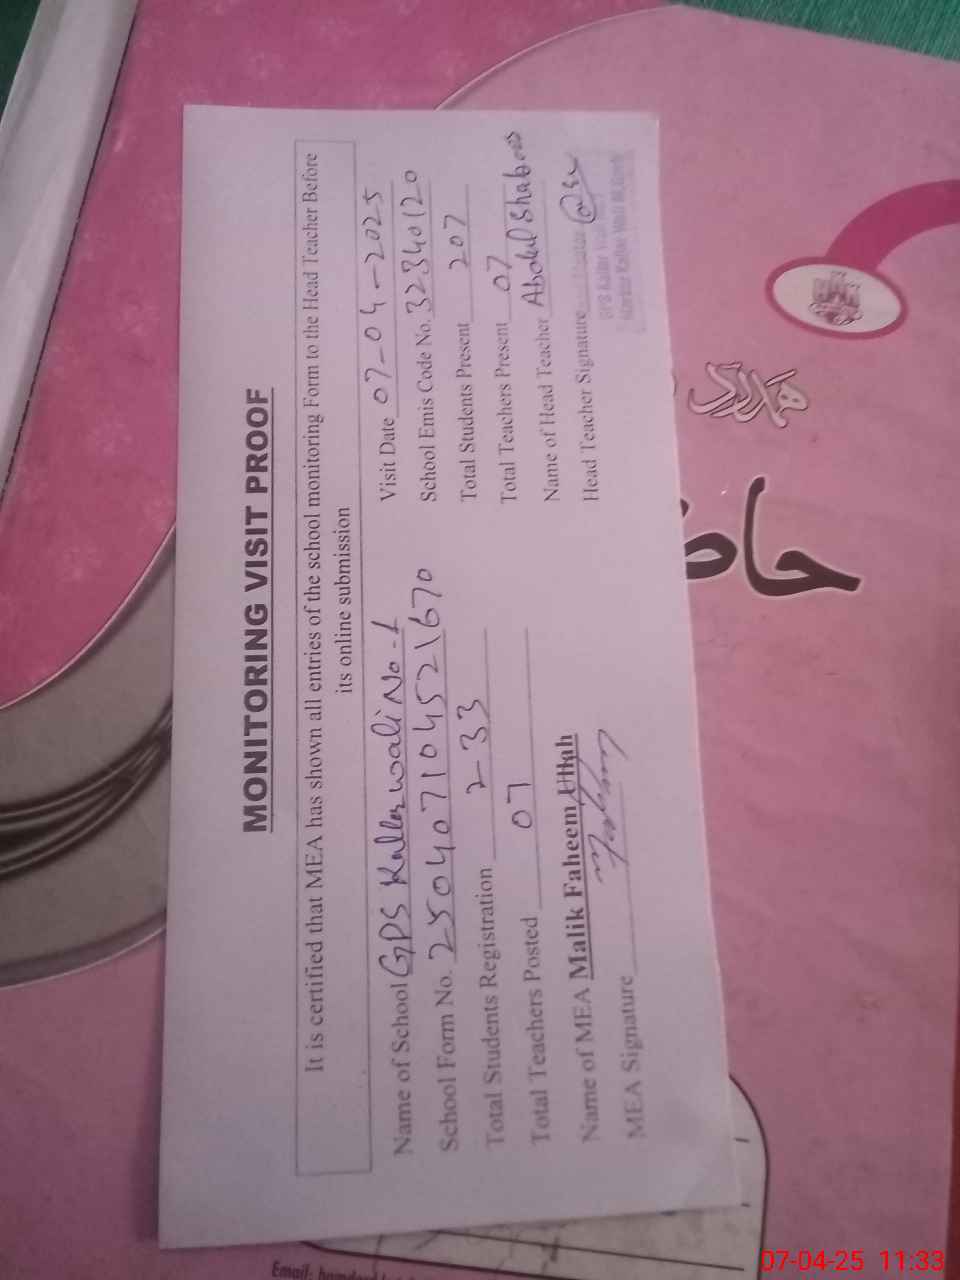 MONITORING VISIT PROOF
It is certified that MEA has shown all entries of the school monitoring Form to the Head Teacher Before
its online submission
Name of School GPS Kallerwali No-1
Visit Date 07-04-2025
School Form No. 250407104521670
School Emis Code No. 32340120
Total Students Registration 233
Total Students Present 207
Total Teachers Posted 07
Total Teachers Present 07
Name of MEA Malik Faheem Ullah
Name of Head Teacher Abdul Shaboor
MEA Signature
Head Teacher Signature
GPS Kaller
ہمدرد
Email:
07-04-25 11:33